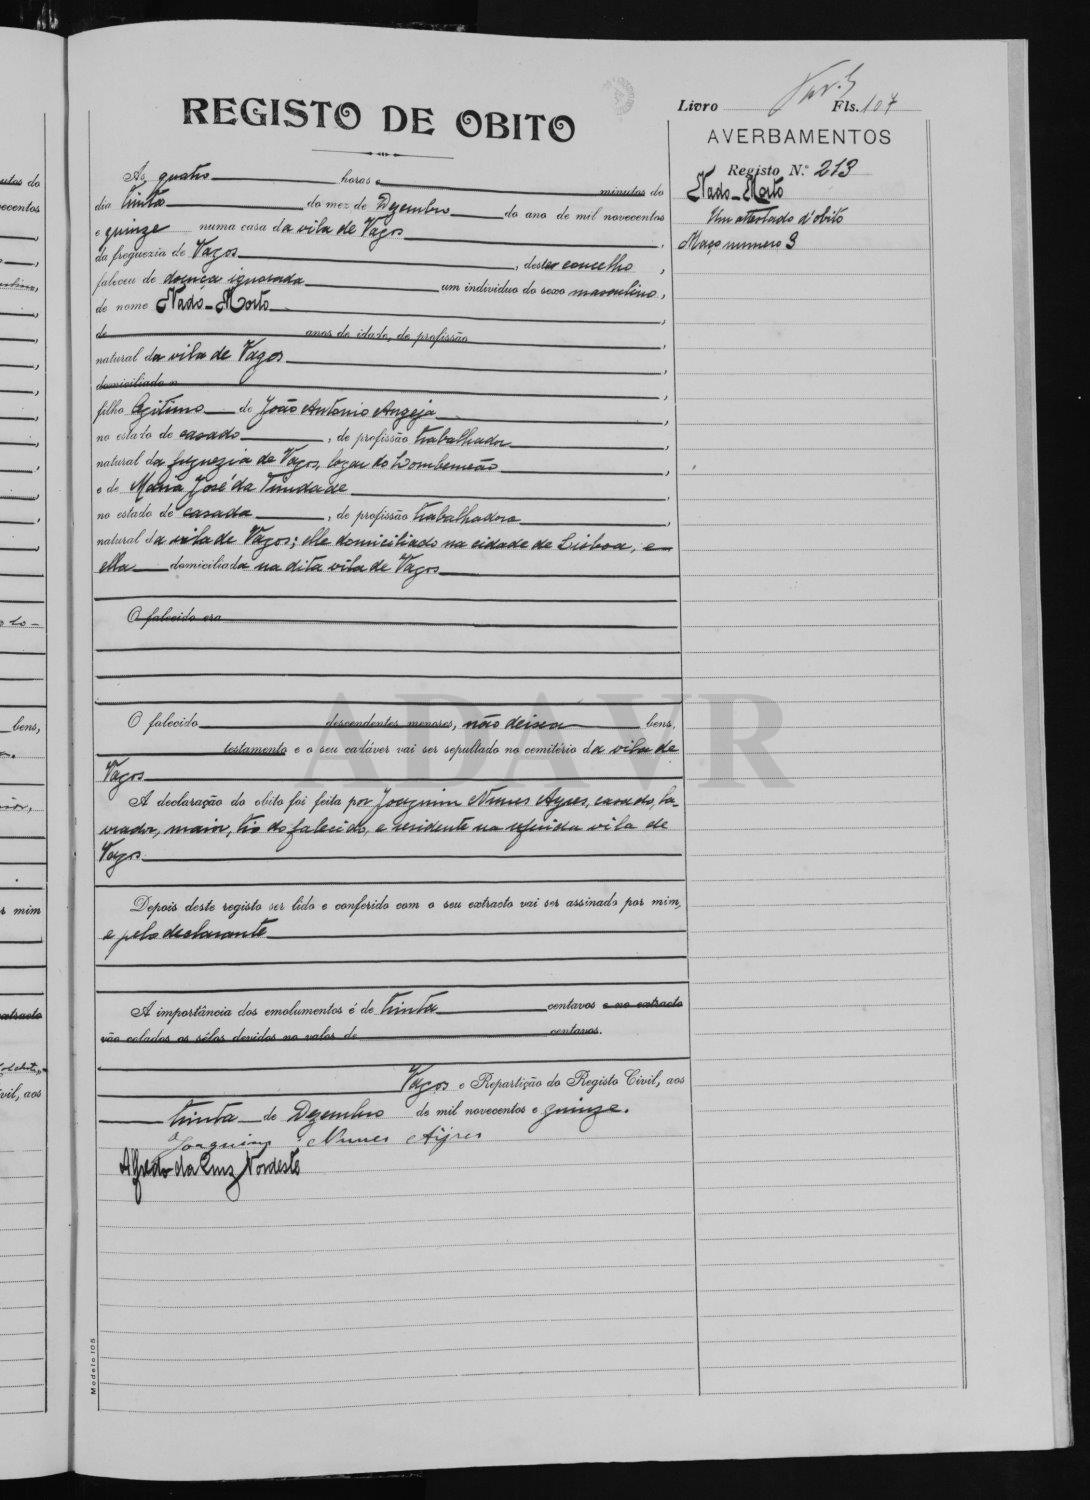 Livro Fls. 107
REGISTO DE OBITO
AVERBAMENTOS
Registo N.º 213
Nado-Morto
Um attestado d'obito
Maço numero 3
Ás quatro horas e minutos do
dia trinta do mez de Dezembro do ano de mil novecentos
e quinze numa casa da vila de Vagos,
da freguezia de Vagos, deste concelho,
faleceu de doença ignorada um individuo do sexo masculino,
de nome Nado-Morto,
de anos de idade, de profissão,
natural da vila de Vagos,
domiciliado n,
filho legitimo de João Antonio Angeja,
no estado de casado, de profissão trabalhador,
natural da freguezia de Vagos, logar do Lombomeão,
e de Maria José da Trindade,
no estado de casada, de profissão trabalhadora,
natural da vila de Vagos; elle domiciliado na cidade de Lisboa, e
ella domiciliada na dita vila de Vagos
O falecido era
O falecido descendentes menores, não deixa bens,
testamento e o seu cadáver vai ser sepultado no cemitério da vila de
Vagos
A declaração do obito foi feita por Joaquim Nunes Ayres, casado, la-
vrador, maior, tio do falecido, e residente na referida vila de
Vagos
Depois deste registo ser lido e conferido com o seu extracto vai ser assinado por mim,
e pelo declarante
A importância dos emolumentos é de trinta centavos e no extracto
vão colados os sêlos devidos no valor de centavos.
Vagos e Repartição do Registo Civil, aos
trinta de Dezembro de mil novecentos e quinze.
Joaquim Nunes Aijres
Alfredo da Cruz Nordeste
Modelo 105
ADAVR